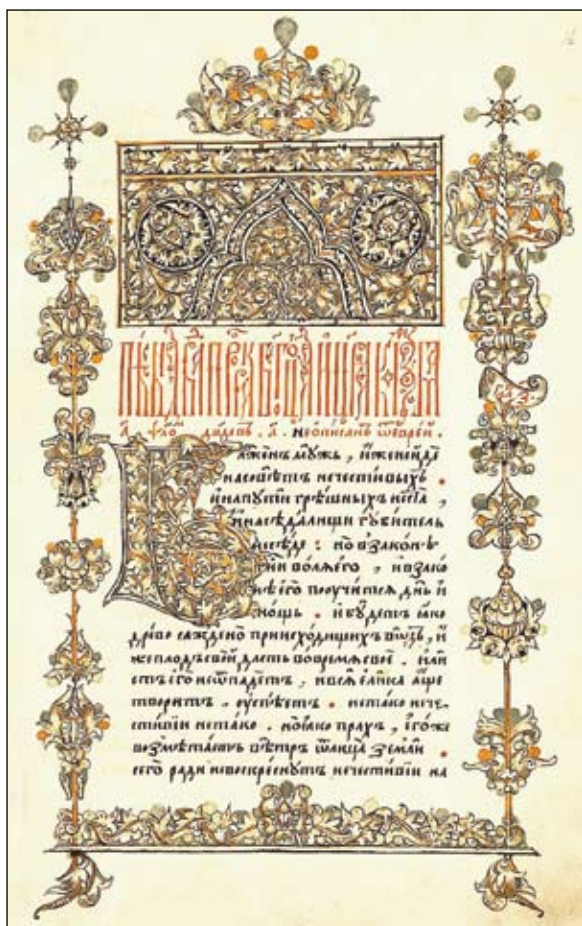 неѡписанъ ѿ еврей .
Блаженъ мужь , и҆же не и҆де
на совѣтъ нечестивыхъ .
и҆ на пути грѣшныхъ не ста ,
и҆ на сѣдалищи гꙋбитель
не сѣде : но в законѣ
гн҃и волѧ его , и҆ в зако
нѣ е҆го поучитсѧ , дн҃ь и҆
нощь . и҆ бꙋдетъ ꙗко
древо саждено при исходищихъ водъ , и҆
же плодъ свой дастъ во времѧ свое . и҆ ли
стъ его не ѿпадетъ , и҆ всѧ е҆лика аще
творитъ . оуспѣетъ . не тако нече
стивїи не тако . но ꙗко прахъ , е҆го же
возмѣтаетъ вѣтръ ѿ лица земли .
сего ради не воскреснутъ нечестивїи на